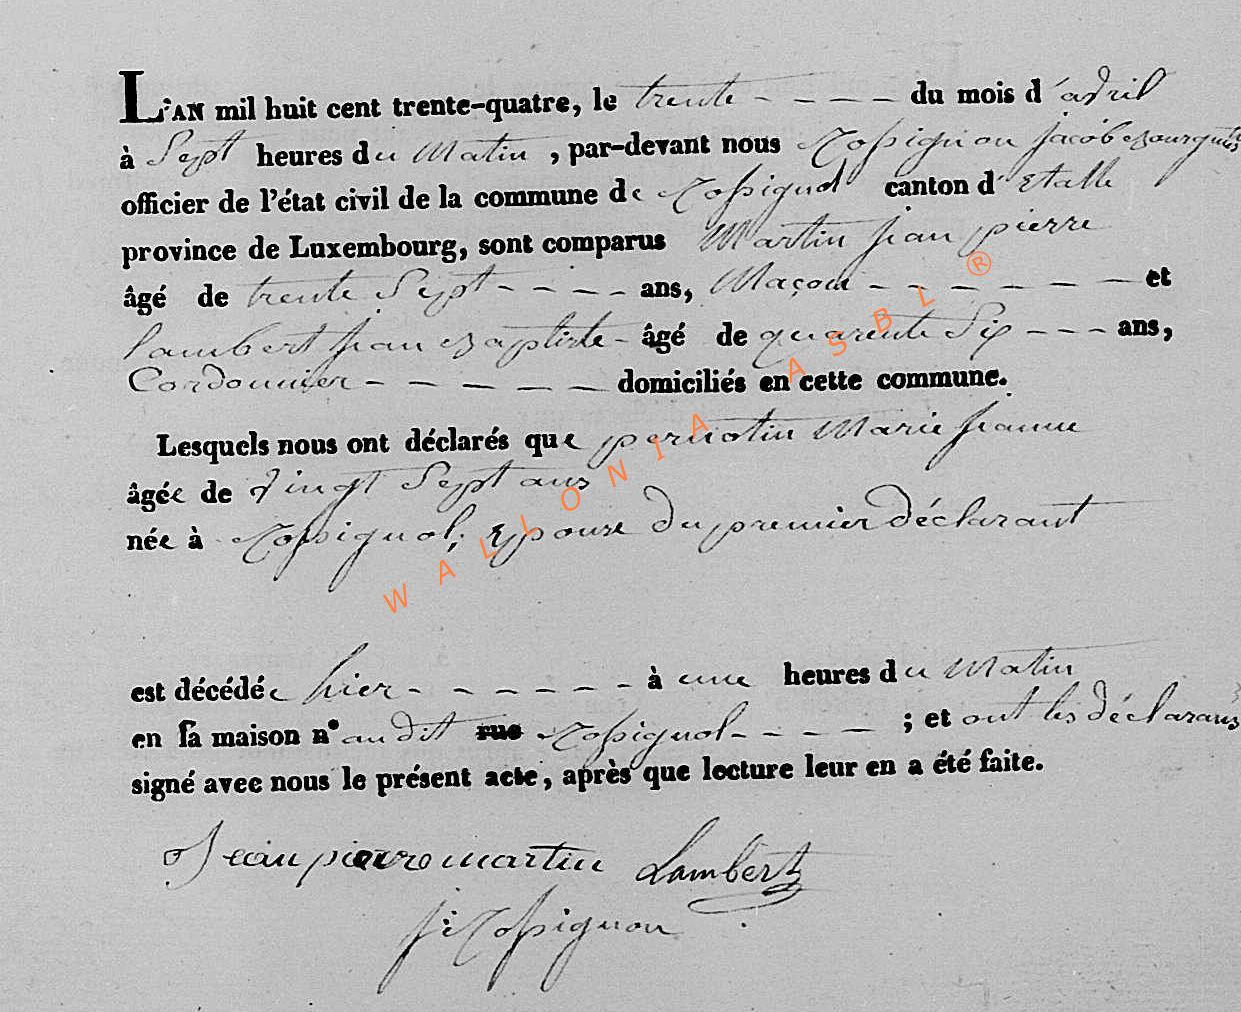 L'AN mil huit cent trente-quatre, le trente - - - - du mois d'avril
à Sept heures du Matin, par-devant nous Rossignon Jacob Bourgmtre
officier de l'état civil de la commune de Rossignol canton d'Etalle
province de Luxembourg, sont comparus Martin jean pierre
âgé de trente Sept - - - - ans, Maçon - - - - - - et
lambert jean Baptiste - âgé de quarente Six - - - ans,
Cordonnier - - - - - - domiciliés en cette commune.
Lesquels nous ont déclarés que pernotin Marie jeanne
âgée de vingt Sept ans
née à Rossignol, Epouse du premier déclarant
est décédée hier - - - - - - à une heures du Matin
en sa maison n° audit rue Rossignol - - - - ; et ont les déclarans
signé avec nous le présent acte, après que lecture leur en a été faite.
Jean pierre martin Lambert
j: Rossignon
WALLONIA ASBL ®